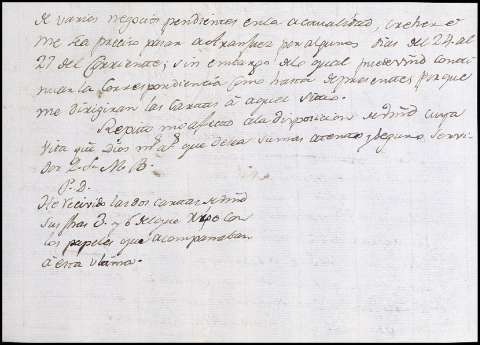 de varios negocios pendientes en la actualidad, creher é
me sea preciso pasar a Aranjuez por algunos dias del 24 al
27 del Corriente; sin embargo de lo qual puede Vmd conti
nuar la Correspondencia como hasta de presente, porque
me dirigiran las Cartas á aquel Sitio.
Repito mi afecto á la disposicion de Vmd cuya
Vida que Dios m.s a.s que desea su mas atento y seguro servi
dor Q. S. M. B.
P. D.
He recivido las dos Cartas de Vmd
sus fhas 3. y 6 de con
los papeles que acompañaban
á esta ultima.